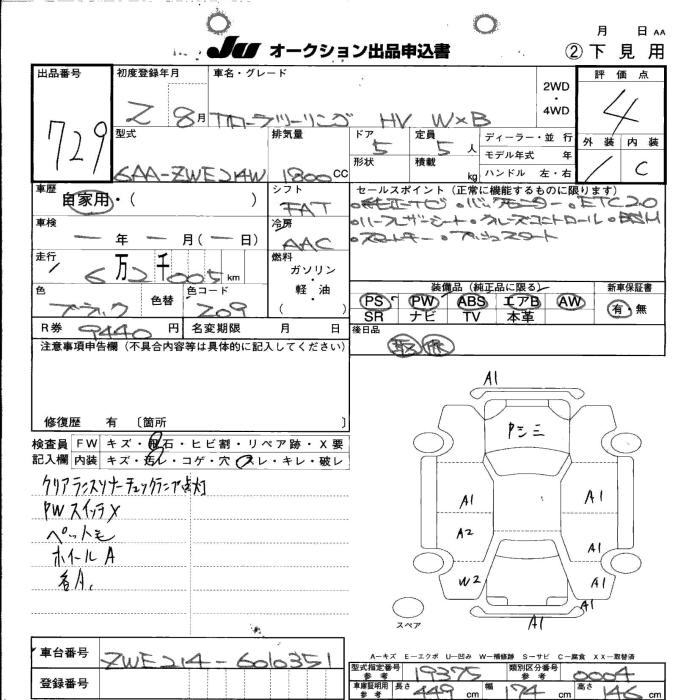 月 日 AA
JU オークション出品申込書 ②下見用
出品番号 初度登録年月 車名・グレード 2WD・4WD 評価点
729 2 8月 カローラツーリング HV W×B 4
型式 排気量 ドア 5 定員 5人 ディーラー・並行 外装 内装
6AA-ZWE214W 1800cc 形状 積載 kg モデル年式 年 C
ハンドル 左・右
車歴 自家用・( ) シフト FAT セールスポイント (正常に機能するものに限ります)
・純正ナビ ・バックモニター ・ETC2.0
車検 ー年ー月(ー日) 冷房 AAC ・ハーフレザーシート ・クルーズコントロール ・BSM
・スマートキー ・プッシュスタート
走行 6万2千005km 燃料 ガソリン・軽・油 ( )
装備品(純正品に限る) 新車保証書
PS PW ABS エアB AW 有・無
SR ナビ TV 本革
色 ブラック 色替 色コード 209
R券 9440円 名変期限 月 日 後日品
取 保
注意事項申告欄 (不具合内容等は具体的に記入してください)
修復歴 有 〔箇所 〕
検査員記入欄 FW キズ・飛石・ヒビ割・リペア跡・X要
内装 キズ・汚レ・コゲ・穴・スレ・キレ・破レ
クリアランスソナーチェックランプ点灯
PWスイッチX
ペット毛
ホイールA
各A.
A1
Pシミ
A1 A1
A2 A1
W2 A1
A1
A1
スペア
A-キズ E-エクボ U-凹み W-補修跡 S-サビ C-腐食 XX-取替済
車台番号 ZWE214-6010351
登録番号
型式指定番号 参考 19375 類別区分番号 参考 0004
車庫証明用 参考 長さ 449cm 幅 174cm 高さ 146cm